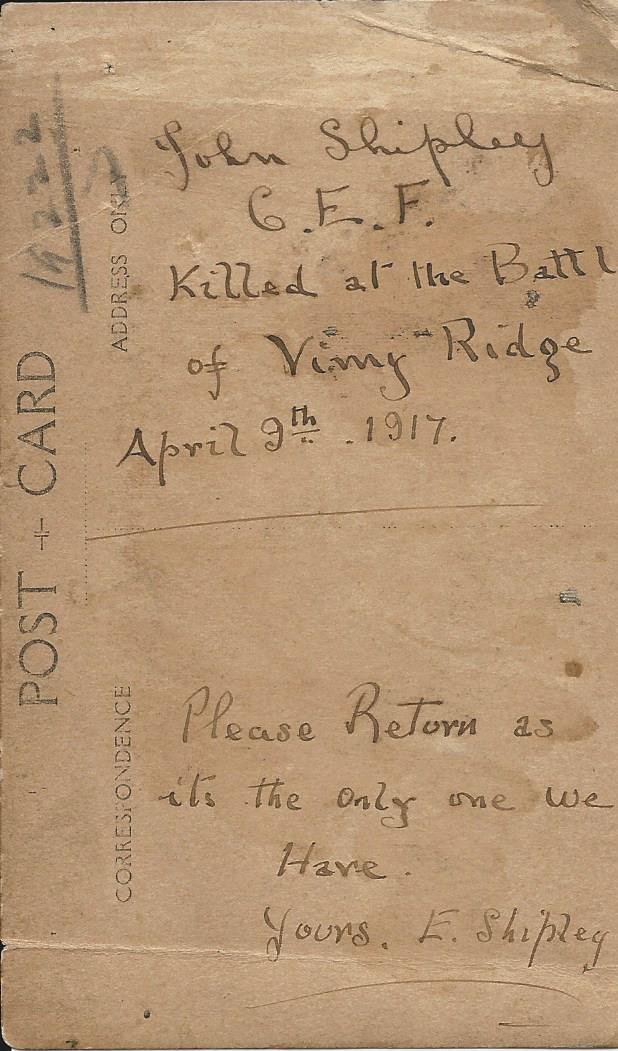 John Shipley
C.E.F.
Killed at the Battl
of Vimy Ridge
April 9th. 1917.
Please Return as
it's the only one we
Have.
Yours. E. Shipley
POST CARD
ADDRESS ONLY
CORRESPONDENCE